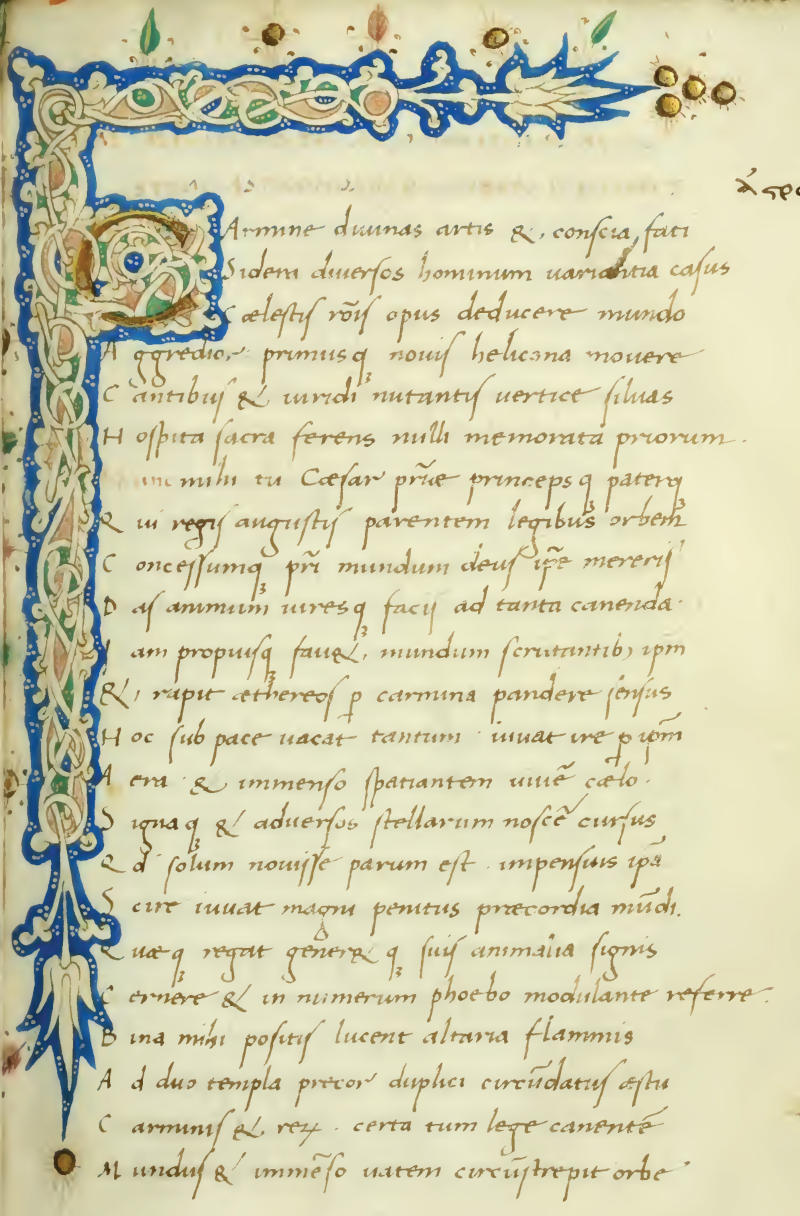 CArmine diuinas artis &, conscia fati
Sidera diuersos hominum uariantia casus
Cælestis rōis opus deducere mundo
Aggredior, primusq; nouis helicona mouere
Cantibus & uiridi nutantis uertice siluas
Hospita sacra ferens nulli memorata priorum.
mihi tu Cæsar pr̄iæ princepsq; paterq;
Qui regis augustis parentem legibus orbem
Concessumq; pr̄i mundum deus ip̄e mereris
Das animum uiresq; facis ad tanta canenda.
Iam propiusq; fau&, mundum scrutantib; ipm̄
&, rapit æthereos p̱ carmina pandere sensus
Hoc sub pace uacat tantum. iuuat ire p̱ ipm̄
Aera & immenso spatiantem uiuē cælo.
Signaq; & aduersos stellarum noscē cursus
Qd̄ solum nouisse parum est. impensius ipā
Scire iuuat magni penitus præcordia mūdi.
Quæq; regat gener&q; suis animalia signis
Cernere & in numerum phoebo modulante referre.
Bina mihi positis lucent altaria flammis
Ad duo templa precor duplici circūdatus æstu
Carminis & reꝝ. certa tum lege canentē
Mundus & immēso uatem circūstrepit orbe